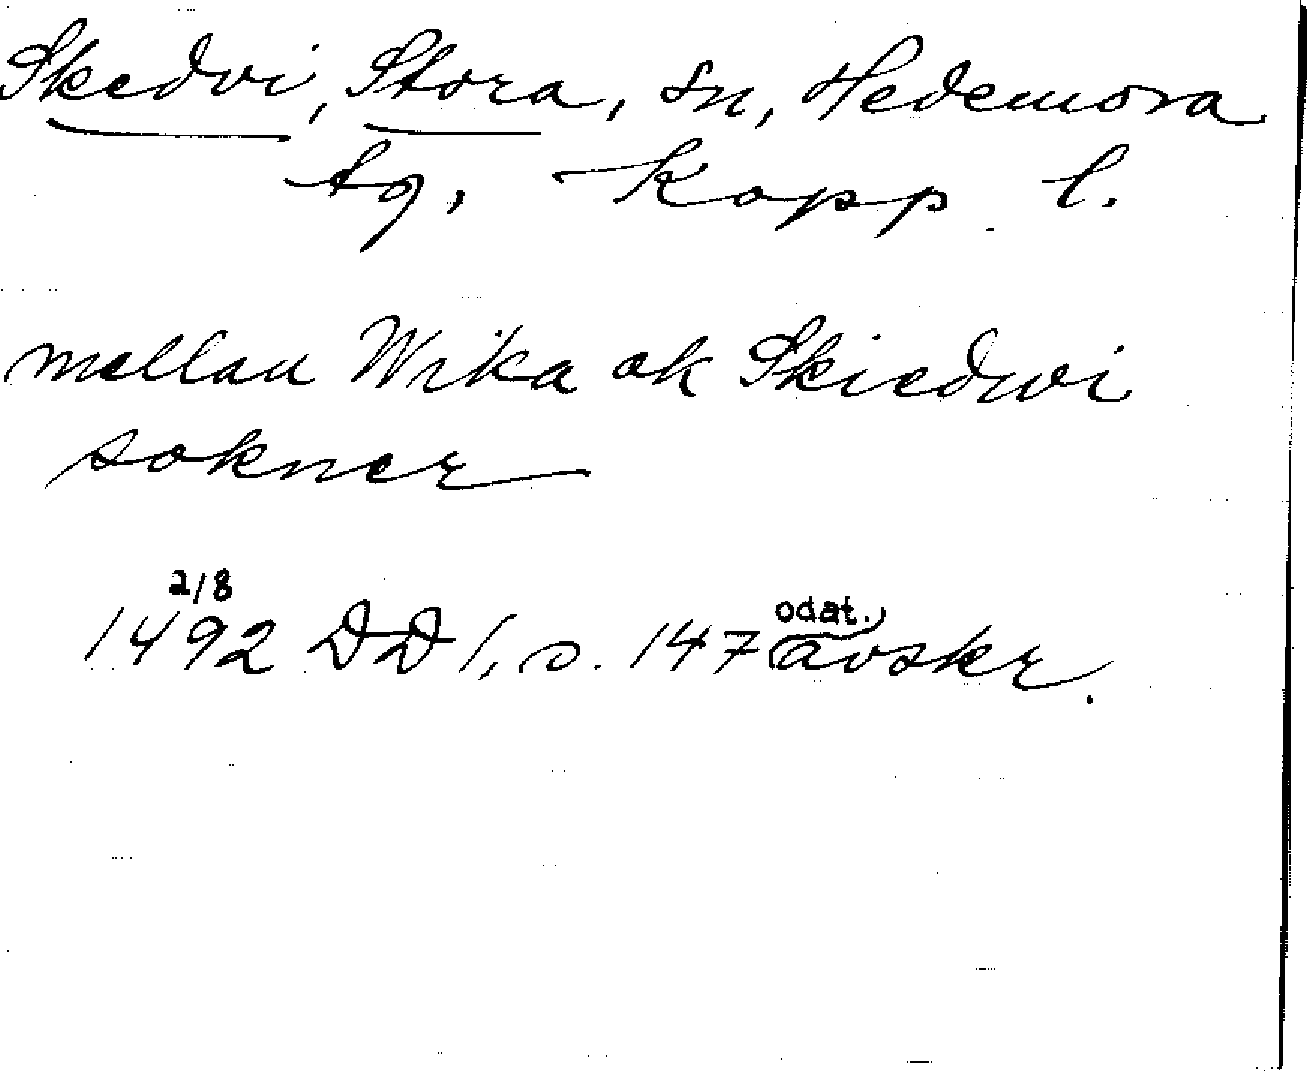 Skedvi, Stora, sn, Hedemora
tg, Kopp. l.
mellan Wika ok Skiedwi
sokner
2/8
1492 DD 1, s. 147 odat. avskr.